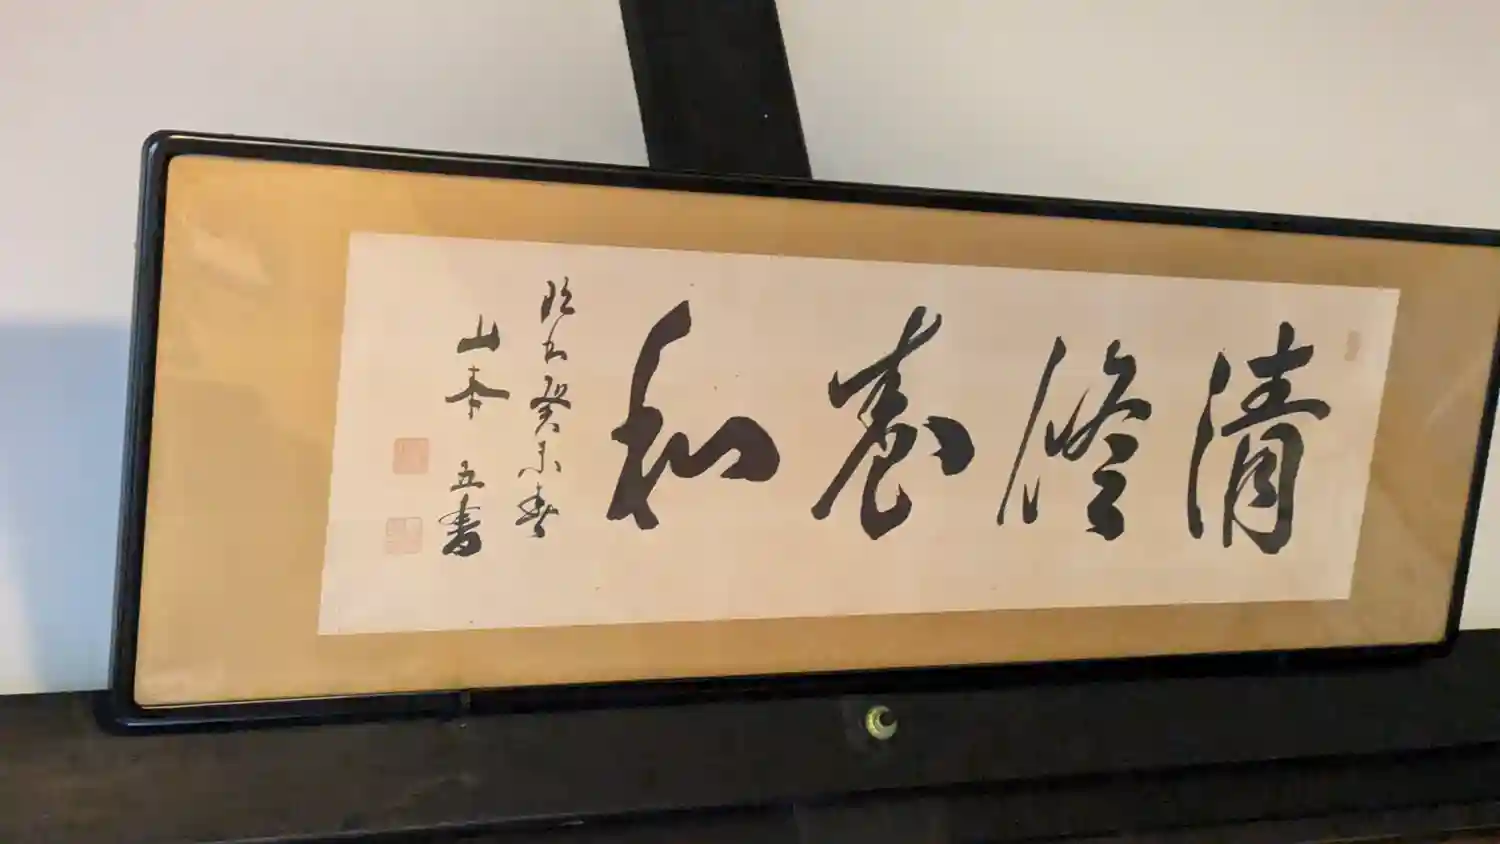 清修養和
昭和癸未春
山本 五書